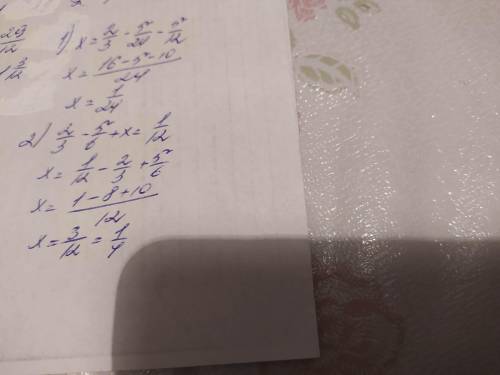 29/12
1 5/12
1) x = 2/3 - 5/24 - 5/12
x = (16 - 5 - 10)/24
x = 1/24
2) 2/3 - 5/6 + x = 1/12
x = 1/12 - 2/3 + 5/6
x = (1 - 8 + 10)/12
x = 3/12 = 1/4